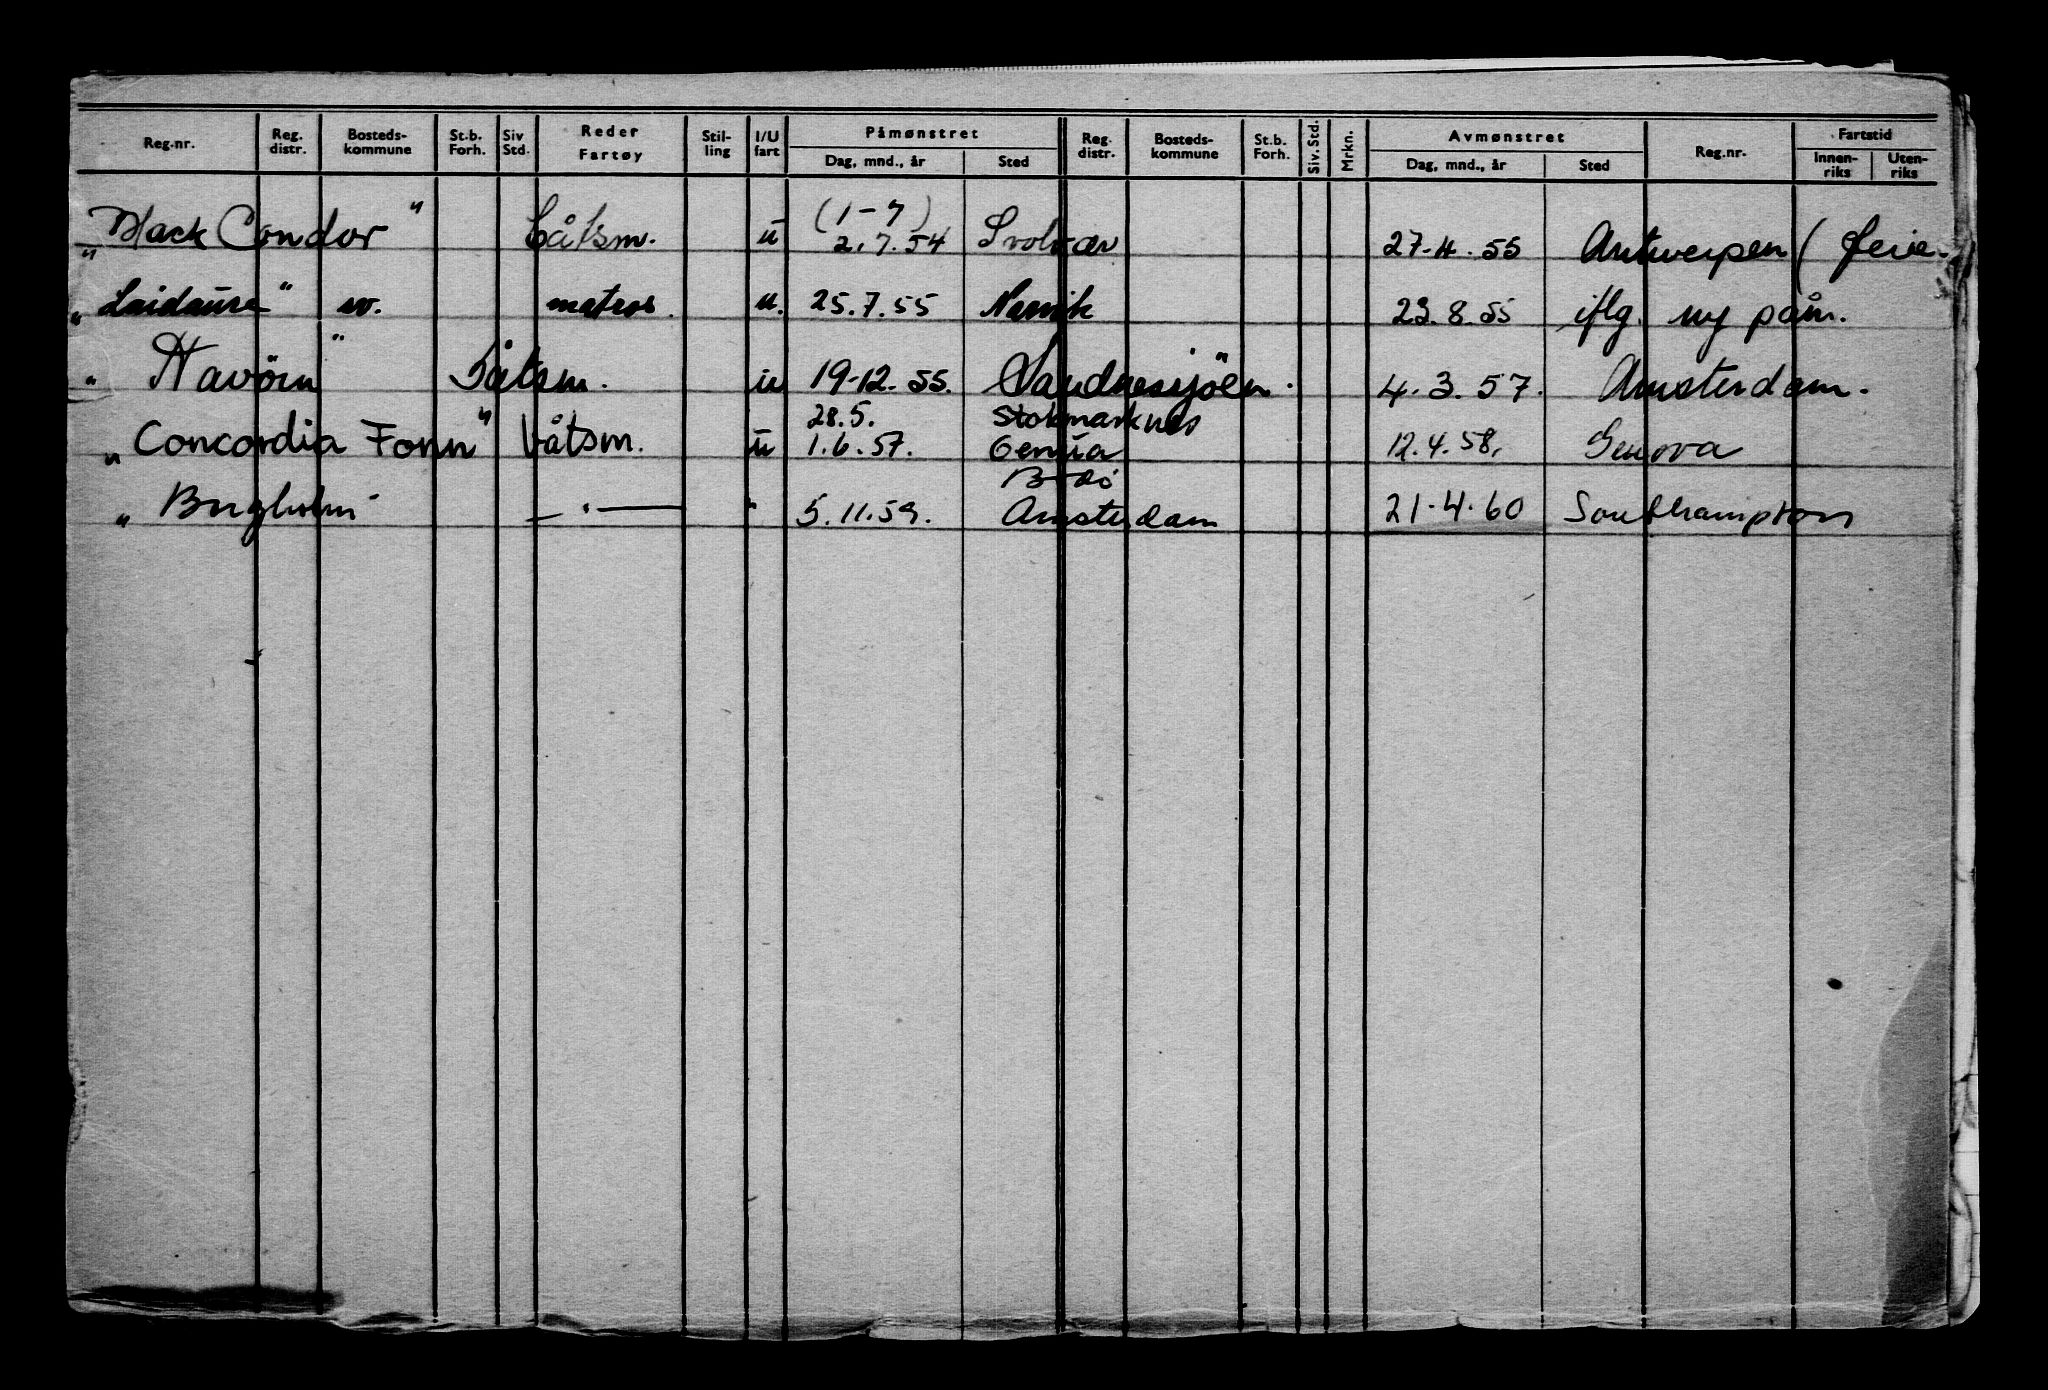 Reg.nr. Reg. distr. Bosteds-kommune St.b. Forh. Siv Std. Reder Fartøy Stil-ling I/U fart Påmønstret Dag, mnd., år Sted Reg. distr. Bosteds-kommune St.b. Forh. Siv. Std. Mrkn. Avmønstret Dag, mnd., år Sted Reg.nr. Fartstid Innen-riks Uten-riks
(1-7)
„Black Condor" båtsm. u 2.7.54 Svolvær 27-4.55 Antwerpen (ferie.
„Laidaure" sv. matros. u. 25.7.55 Narvik 23.8.55 iflg. ny påm.
„Havörn" Båtsm. u 19-12.55. Sandnessjöen. 4.3.57. Amsterdam.
28.5. Stokmarknes
„Concordia Fonn" båtsm. u 1.6.57. Genua 12.4.58. Genova
Bodö
„Borgholm" —"— " 5.11.59. Amsterdam 21-4.60 Southampton